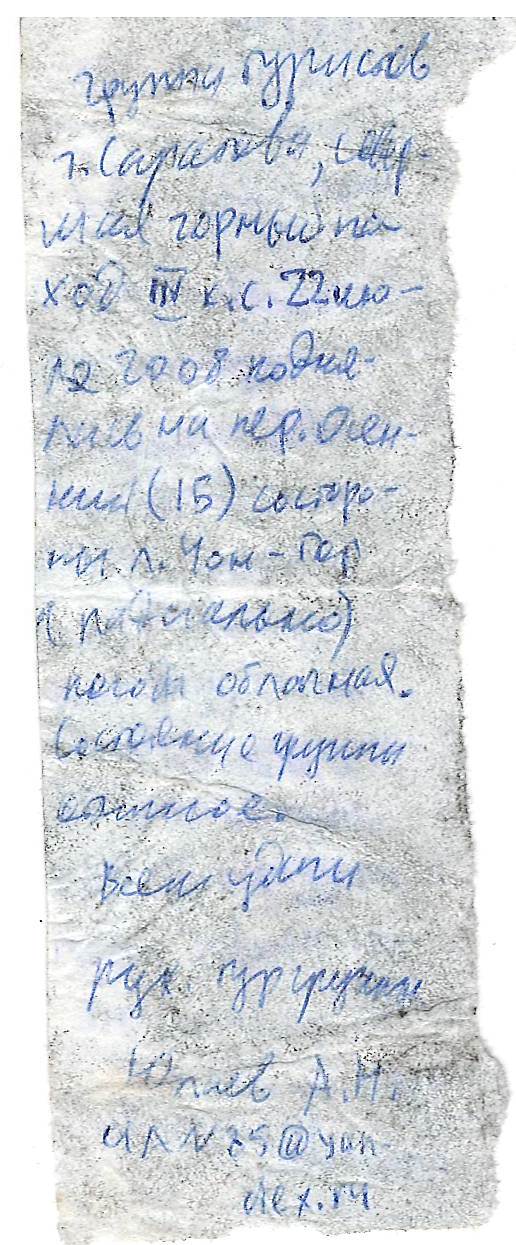 группа туристов
г. Сарапова, совер-
шая горный по
ход III к.с. 22 ию-
ля 2008 подня-
лись на пер.
(1Б) со сторо-
ны л. Чон-Тор
погода облачная.
Состояние группы
отличное.
Всем удачи
рук. тургруппы
А.Н.
@yan-
dex.ru